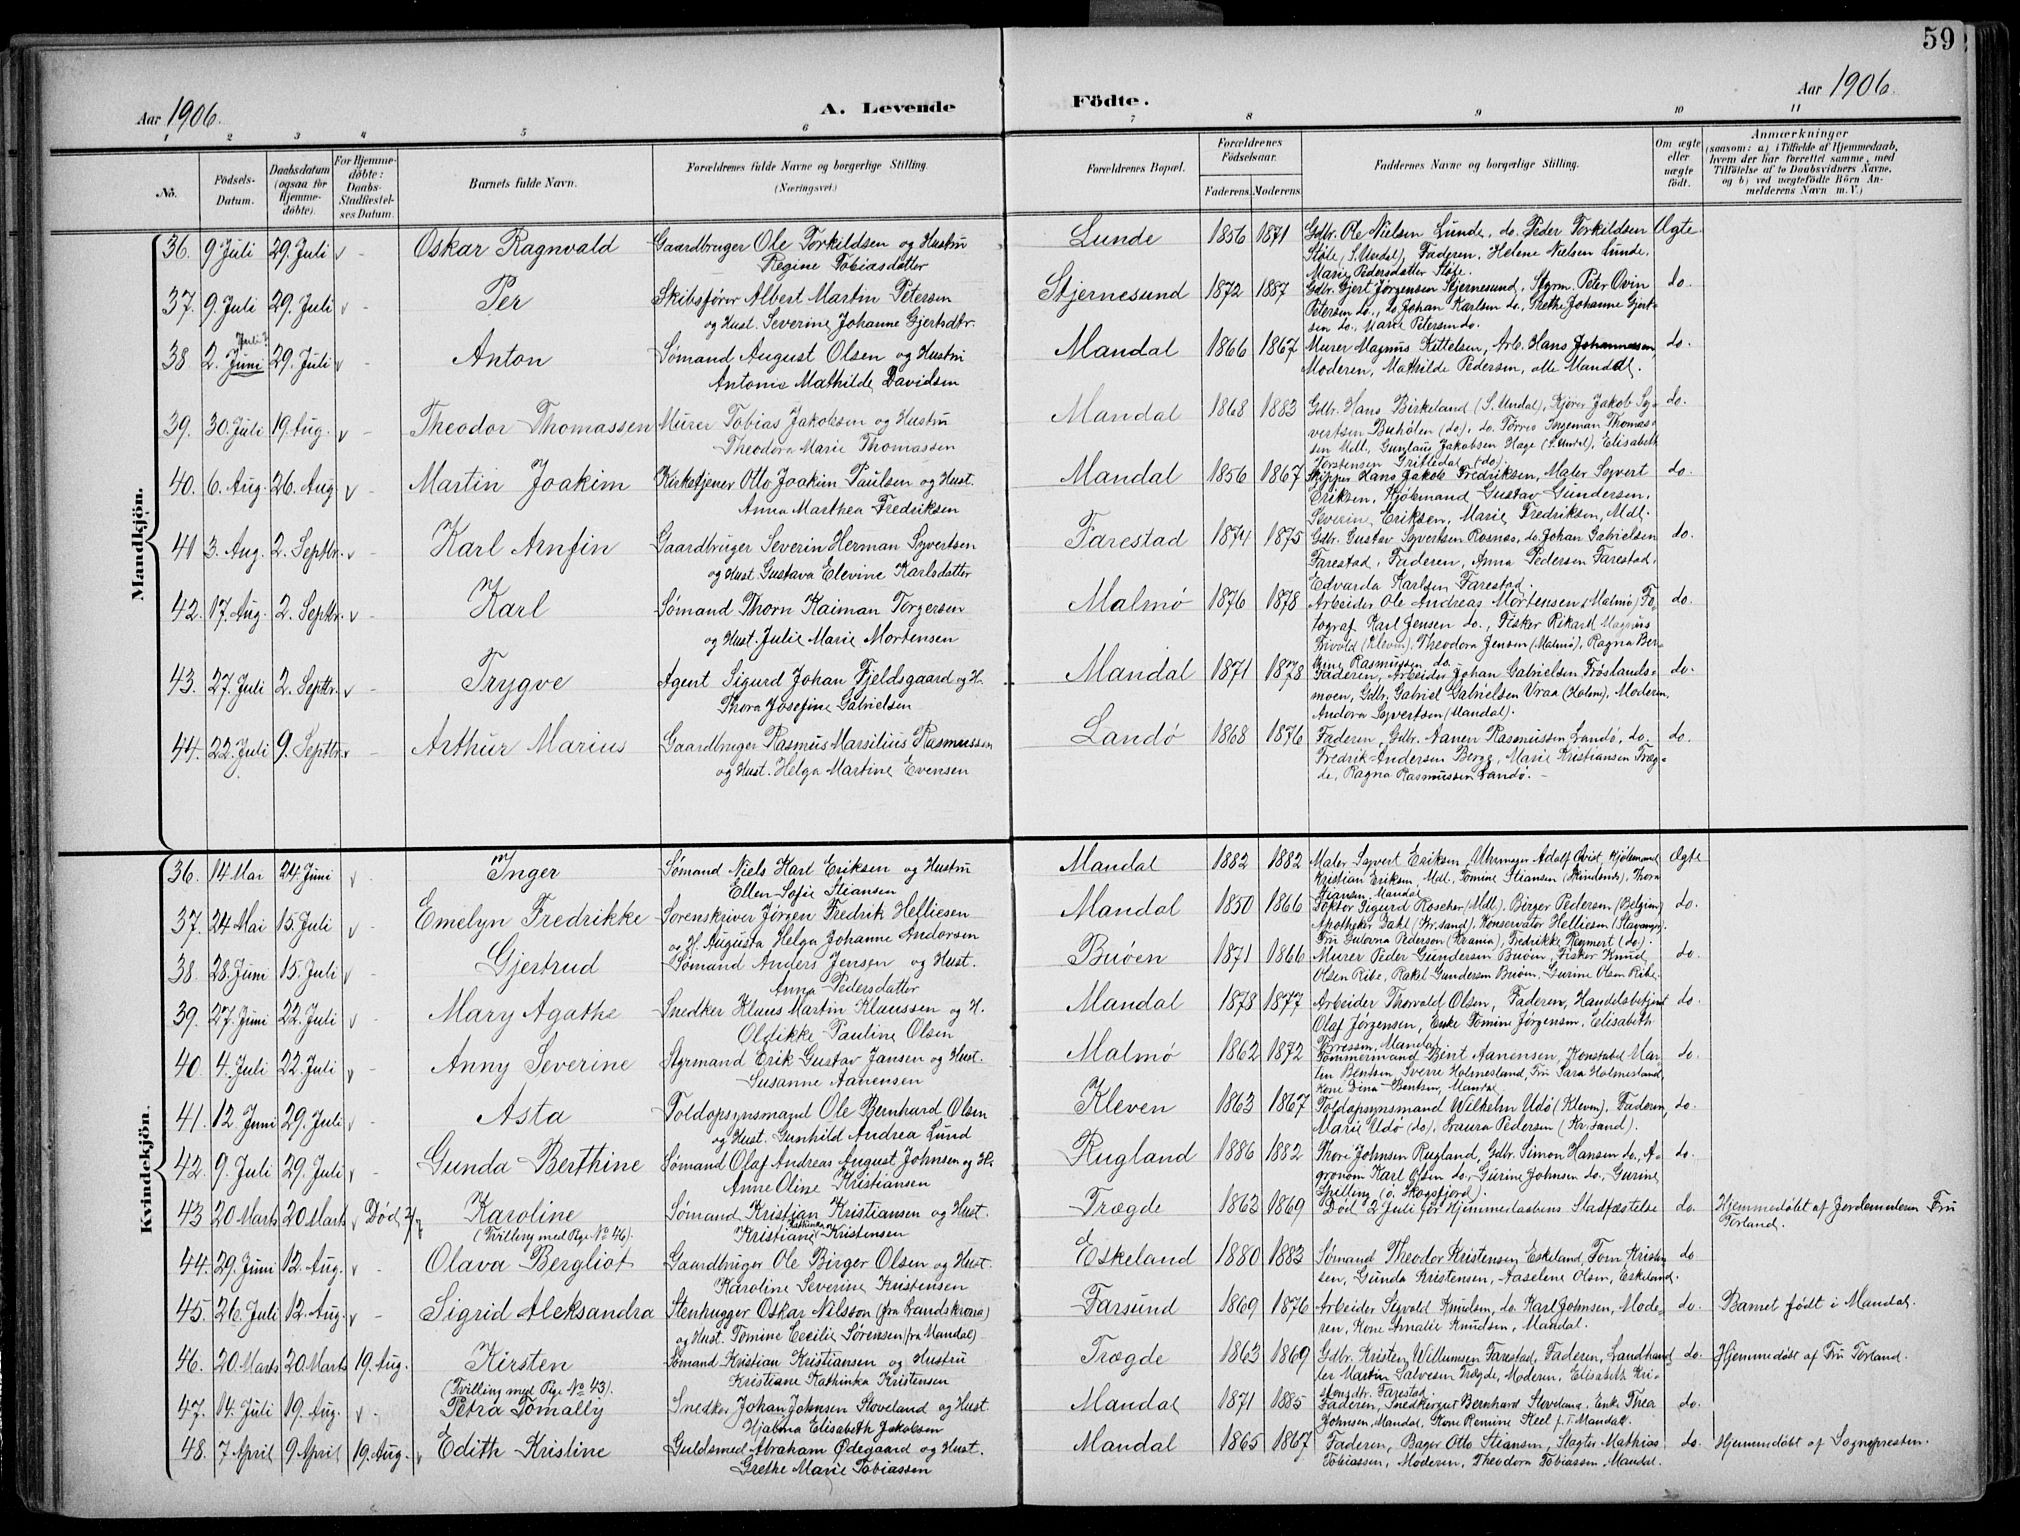 59
Aar 1906.
A. Levende Födte.
Aar 1906.
1 2 3 4 5 6 7 8 9 10 11
No.
Födsels-Datum.
Daabsdatum (ogsaa for Hjemmedöbte).
For Hjemmedöbte: Daabs-Stadfæstelses Datum.
Barnets fulde Navn.
Forældrenes fulde Navne og borgerlige Stilling. (Næringsvei.)
Forældrenes Bopæl.
Forældrenes Födselsaar.
Faderens. Moderens.
Faddernes Navne og borgerlige Stilling.
Om ægte eller uægte födt.
Anmærkninger (saasom: a) i Tilfælde af Hjemmedaab, hvem der har forrettet samme, med Tilföielse af to Daabsvidners Navne, og b) ved uægtefödte Börn Anmelderens Navn m. V.)
Mandkjön.
36. 9 Juli 29. Juli Oskar Ragnvald Gaardbruger Ole Torkildsen og Hustru Lunde 1856 1871 Gdbr. Ole Nielsen Lunde, do. Peder Torkildsen Ægte
Regine Tobiasdatter Støle (S. Undal), Faderen, Helene Nielsen Lunde,
Marie Pedersdatter Støle.
37. 9 Juli 29. Juli Per Skibsfører Albert Martin Petersen Stjernesund 1872 1887 Gdbr. Gjert Jörgensen Stjernesund, Styrm. Peter Ovin do.
og Hust. Severine Johanne Gjertsdtr. Petersen do., do. Johan Karlsen do., Grethe Johanne Gjertsen do., Marie Petersen do.
Juli?
38 2. Juni 29. Juli Anton Sømand August Olsen og Hustru Mandal 1866 1867 Murer Magnus Kittelsen, Arb. Hans Johannessen, do.
Antonie Mathilde Davidsen Moderen, Mathilde Pedersen, alle Mandal.
39. 30. Juli 19. Aug. Theodor Thomassen Murer Tobias Jakobsen og Hustru Mandal 1868 1883 Gdbr. Hans Birkeland (S. Undal), Kjører Jakob Sy- do.
Theodora Marie Thomassen vertsen Buhølen (do), do. Torres Ingeman Thomassen Mdl., Gunlaug Jakobsen Hage (S. Undal), Elisabeth
Torstensen Grittedal (do).
40. 6. Aug. 26. Aug Martin Joakim Kirketjener Otto Joakim Paulsen og Hust. Mandal 1856 1867 Skipper Hans Jakob Fredriksen, Maler Syvert do.
Anna Marthea Fredriksen Eriksen, Kjøbmand Gustav Gundersen,
Severine Eriksen, Marie Fredriksen, Mdl.
41 3. Aug. 2. Septbr. Karl Arnfin Gaardbruger Severin Herman Syvertsen Farestad 1874 1875 Gdbr. Gustav Syvertsen Rosnes, do. Johan Gabrielsen do.
og Hust. Gustava Elevine Karlsdatter Farestad, Faderen, Anna Pedersen Farestad,
Edvarda Karlsen Farestad.
42. 17. Aug. 2. Septbr. Karl Sømand Thorn Kaiman Torgersen Malmø 1876 1878 Arbeider Ole Andreas Mortensen (Malmø) Fo- do.
og Hust. Julie Marie Mortensen tograf Karl Jensen do., Fisker Rikard Magnus
Frivold (Kleven), Theodora Jensen (Malmø), Ragna Bergine Rasmussen do.
43. 27. Juli 2. Septbr. Trygve Agent Sigurd Johan Fjeldsgaard og H. Mandal 1871 1878 Faderen, Arbeider Johan Gabrielsen Frøslands- do.
Thora Josefine Gabrielsen moen, Gdbr. Gabriel Gabrielsen Vraa (Holm), Moderen,
Andora Syvertsen (Mandal).
44. 22. Juli 9. Septbr. Arthur Marius Gaardbruger Rasmus Marsilius Rasmussen Landø 1868 1876 Faderen, Gdbr. Aanen Rasmussen Landø, do. do.
og Hust. Helga Martine Evensen Fredrik Andersen Berge, Marie Kristiansen Trægde, Ragna Rasmussen Landø.
Kvindekjön.
36. 14 Mai 24. Juni Inger Sømand Niels Karl Eriksen og Hustru Mandal 1882 1882 Maler Syvert Eriksen, Uhrmager Adolf Qvist, Kjøbmand Ægte
Ellen Sofie Stiansen Kristian Eriksen Mdl. Tomine Stiansen (Skindsnes), Thora
Stiansen Mandal
37. 24 Mai 15. Juli Emelyn Fredrikke Sorenskriver Jørgen Fredrik Helliesen Mandal 1850 1866 Doktor Sigurd Rosehn (Mdl.) Birger Pedersen (Belgien) do.
og H. Augusta Helga Johanne Andorsen Apotheker Dahl (Kr.sand), Konservator Helliesen (Stavanger),
Fru Gulorna Pedersen (Krania), Fredrikke Reymert (do).
38. 28. Juni 15. Juli Gjertrud Sømand Anders Jensen og Hust. Buøen 1871 1866 Murer Peder Gundersen Buøen, Fisker Knud do.
Anna Pedersdatter Olsen Ribe, Rakel Gundersen Buøen, Gurine Olsen Ribe.
39. 27. Juni 22. Juli Mary Agathe Snedker Klaus Martin Klaussen og H. Mandal 1878 1877 Arbeider Thorvald Olsen, Faderen, Handelsbetjent do.
Oldikke Pauline Olsen Olaf Jørgensen, Enke Tomine Jørgensen, Elisabeth
Torressen, Mandal
40. 4. Juli 22. Juli Anny Severine Styrmand Erik Gustav Jansen og Hust. Malmø 1862 1872 Tømmermand Bent Aanensen, Konstabel Mar- do.
Susanne Aanensen tin Bentsen, Sverre Holmesland, Fru Sara Holmesland,
Kone Dina Bentsen, Mandal
41. 12 Juni 29. Juli Asta Toldopsynsmand Ole Bernhard Olsen Kleven 1863 1867 Toldopsynsmand Wilhelm Udø (Kleven), Faderen, do.
og Hust. Gunhild Andrea Lund Marie Udø (do), Laura Pedersen (Kr.sand).
42. 9. Juli 29. Juli Gunda Berthine Sømand Olaf Andreas August Johnsen og H. Rugland 1886 1882 Thore Johnsen Rugland, Gdbr. Simon Hansen do., A- do.
Anne Oline Kristiansen gronom Karl Olsen do., Gurine Johnsen do., Gurine
Spilling (ø. Skogsfjord).
43 20 Marts 20 Marts Død 2/7 Karoline Sømand Kristian Kristiansen og Hust. Trægde 1863 1869 Død 2 Juli før Hjemmedaabens Stadfæstelse do. Hjemmedøbt af Jordemoderen Fru
(Tvilling med Pige No 46). Kristiane Kathinka Kristensen Torland.
44. 29. Juni 12. Aug. Olava Bergliot Gaardbruger Ole Birger Olsen og Hust. Eskeland 1880 1883 Sømand Theodor Kristensen, Eskeland, Tom Kristen- do
Karoline Severine Kristensen sen, Gunda Kristensen, Aaselene Olsen, Eskeland.
45. 26. Juli 12. Aug. Sigrid Aleksandra Stenhugger Oskar Nilsson (fra Landskrona) Farsund 1869 1876 Arbeider Sigvald Knudsen, do. Karl Johnsen, Mode- do. Barnet født i Mandal.
og Hust. Tomine Cecilie Sørensen (fra Mandal) ren, Kone Amalie Knudsen, Mandal.
46. 20 Marts 20 Marts 19. Aug. Kirsten Sømand Kristian Kristiansen og Hustru Trægde 1863 1869 Gdbr. Kristen Willumsen Farestad, Faderen, Landhand- do. Hjemmedøbt af Fru Torland.
(Tvilling med Pige No 43). Kristiane Kathinka Kristensen ler Martin Salvesen Trægde, Moderen, Elisabeth Kristensdtr. Farestad.
47. 14. Juli 19. Aug. Petra Tomally Snedker Johan Johnsen Sloveland og Hust. Mandal 1871 1885 Faderen, Snedkergut Bernhard Sloveland, Enke Thea do.
Hjalma Elisabeth Jakobsen Johnsen, Mandal, Kone Remine Keel f. T. Mandal.
48. 7 April 9 April 19. Aug. Edith Kristine Guldsmed Abraham Ødegaard og Hust. Mandal 1865 1867 Faderen, Bager Otto Stiansen, Slagter Mathias do. Hjemmedøbt af Sognepresten.
Grethe Marie Tobiassen Tobiassen, Moderen, Theodora Tobiassen, Mandal.